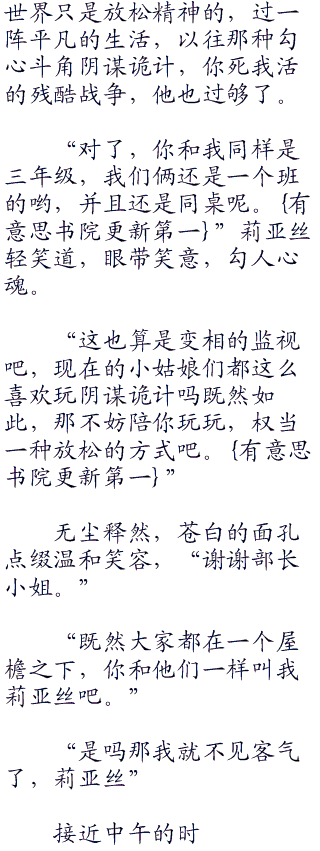 世界只是放松精神的，过一
阵平凡的生活，以往那种勾
心斗角阴谋诡计，你死我活
的残酷战争，他也过够了。
“对了，你和我同样是
三年级，我们俩还是一个班
的哟，并且还是同桌呢。{有
意思书院更新第一}”莉亚丝
轻笑道，眼带笑意，勾人心
魂。
“这也算是变相的监视
吧，现在的小姑娘们都这么
喜欢玩阴谋诡计吗既然如
此，那不妨陪你玩玩，权当
一种放松的方式吧。{有意思
书院更新第一}”
无尘释然，苍白的面孔
点缀温和笑容，“谢谢部长
小姐。”
“既然大家都在一个屋
檐之下，你和他们一样叫我
莉亚丝吧。”
“是吗那我就不见客气
了，莉亚丝”
接近中午的时